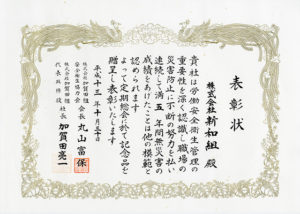 表彰状
株式会社 新和組 殿
貴社は労働安全衛生管理の
重要性を深く認識し職場の
災害防止に不断の努力を払い
連続して満五年間無災害の
成績をあげたことは他の模範と
認められます
よって定期総会に於て記念品を
贈呈し表彰いたします
平成十三年十月三十日
株式会社加賀田組
安全衛生協力会 会長 丸山富保
株式会社加賀田組
代表取締役社長 加賀田亮一